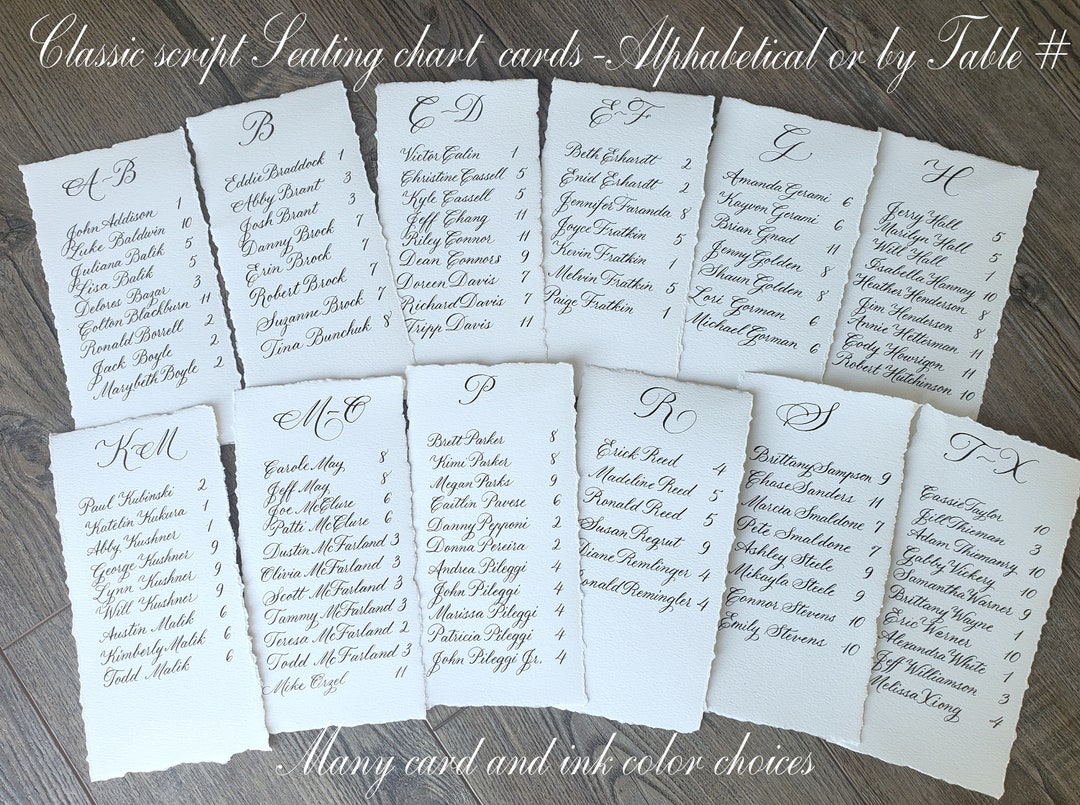 Classic script Seating chart cards - Alphabetical or by Table #
A~B
John Addison 1
Luke Baldwin 10
Juliana Balik 5
Lisa Balik 5
Delores Bazar 3
Colton Blackburn 11
Ronald Borrell 2
Jack Boyle 2
Marybeth Boyle 2
B
Eddie Braddock 1
Abby Brant 3
Josh Brant 3
Danny Brock 7
Erin Brock
Robert Brock 7
Suzanne Brock 7
Tina Bunchuk 8
C~D
Victor Calin 1
Christine Cassell 5
Kyle Cassell 5
Jeff Chang 11
Riley Connor 11
Dean Connors 9
Doreen Davis 7
Richard Davis 7
Tripp Davis 11
E~F
Beth Erhardt 2
Enid Erhardt 2
Jennifer Faranda 8
Joyce Fratkin 5
Kevin Fratkin 1
Melvin Fratkin 5
Paige Fratkin 1
G
Amanda Gerami 6
Kayvon Gerami 6
Brian Gnad 11
Jenny Golden 8
Shaun Golden 8
Lori Gorman 6
Michael Gorman 6
H
Jerry Hall 5
Marilyn Hall 5
Will Hall 1
Isabella Hannay 10
Heather Henderson 8
Jim Henderson 8
Annie Hetterman 11
Cody Howrigon 11
Robert Hutchinson 10
K~M
Paul Kubinski 2
Katelin Kukura 1
Abby Kushner 1
George Kushner 9
Lynn Kushner 9
Will Kushner 9
Austin Malik 6
Kimberly Malik 6
Todd Malik 6
M~O
Carole May 8
Jeff May 8
Joe McClure 6
Patti McClure 6
Dustin McFarland 3
Olivia McFarland 3
Scott McFarland 3
Tammy McFarland 3
Teresa McFarland 2
Todd McFarland 3
Mike Orzel 11
P
Brett Parker 8
Kimi Parker 8
Megan Parks 9
Caitlin Pavese 6
Danny Pepponi 2
Donna Pereira 2
Andrea Pileggi 4
John Pileggi 4
Marissa Pileggi 4
Patricia Pileggi 4
John Pileggi Jr. 4
R
Erick Reed 4
Madeline Reed 5
Ronald Reed 5
Susan Regrut 9
Diane Remlinger 4
Ronald Remingler 4
S
Brittany Sampson 9
Chase Sanders 11
Marcia Smaldone 7
Pete Smaldone 7
Ashley Steele 9
Mikayla Steele 9
Connor Stevens 10
Emily Stevens 10
T~X
Cassie Taylor 10
Jill Thieman 3
Adam Thiemanry 10
Gabby Vickery 10
Samantha Warner 9
Brittany Wayne 1
Eric Werner 10
Alexandra White 1
Jeff Williamson 3
Melissa Xiong 4
Many card and ink color choices